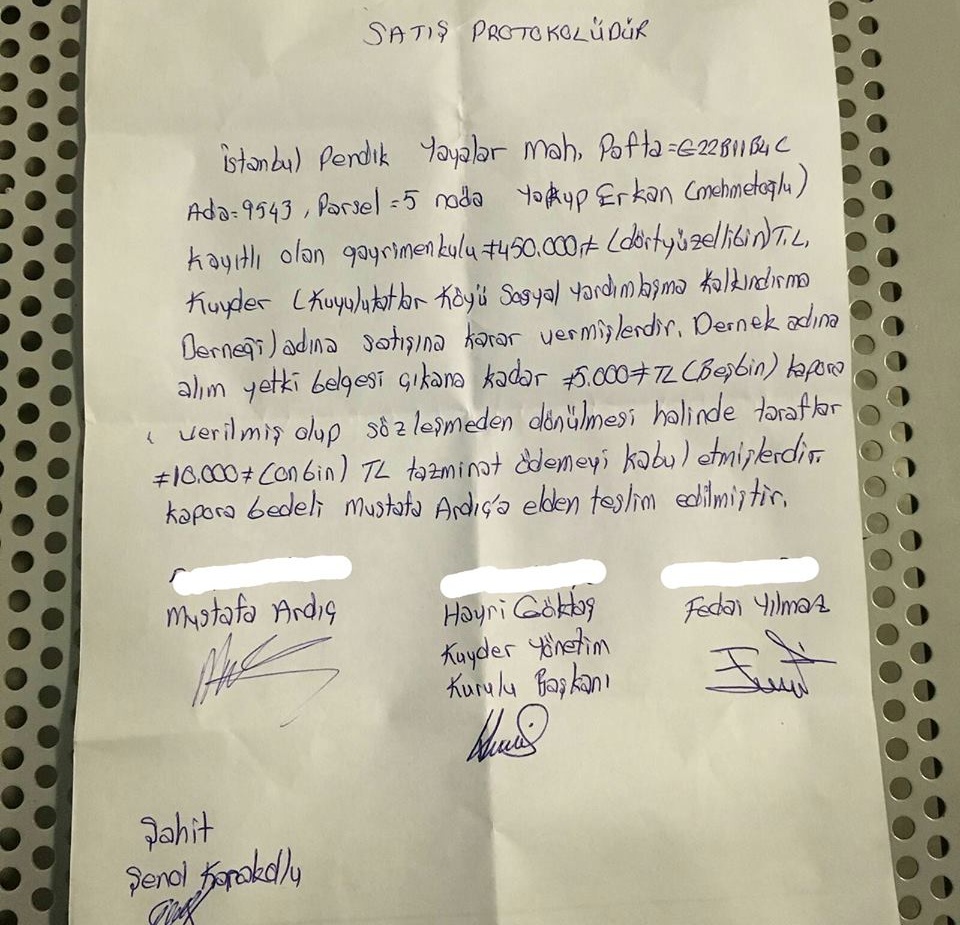 SATIŞ PROTOKOLÜDÜR
İstanbul Pendik Yayalar Mah. Pafta=G22B11B4C
Ada=9543, Parsel=5 nada Yakup Erkan (mehmetoğlu)
kayıtlı olan gayrimenkulu ≠450.000,≠ (dörtyüzellibin) T.L.
Kuyder (Kuyulukatlar Köyü Sosyal Yardımlaşma Kalkındırma
Derneği) adına satışına karar vermişlerdir. Dernek adına
alım yetki belgesi çıkana kadar ≠5.000≠ TL (Beşbin) kapora
verilmiş olup sözleşmeden dönülmesi halinde taraflar
≠10.000≠ (onbin) TL tazminat ödemeyi kabul etmişlerdir.
kapora bedeli Mustafa Ardıç'a elden teslim edilmiştir.
Mustafa Ardıç Hayri Göktaş Fedai Yılmaz
Kuyder Yönetim
Kurulu Başkanı
Şahit
Şenol